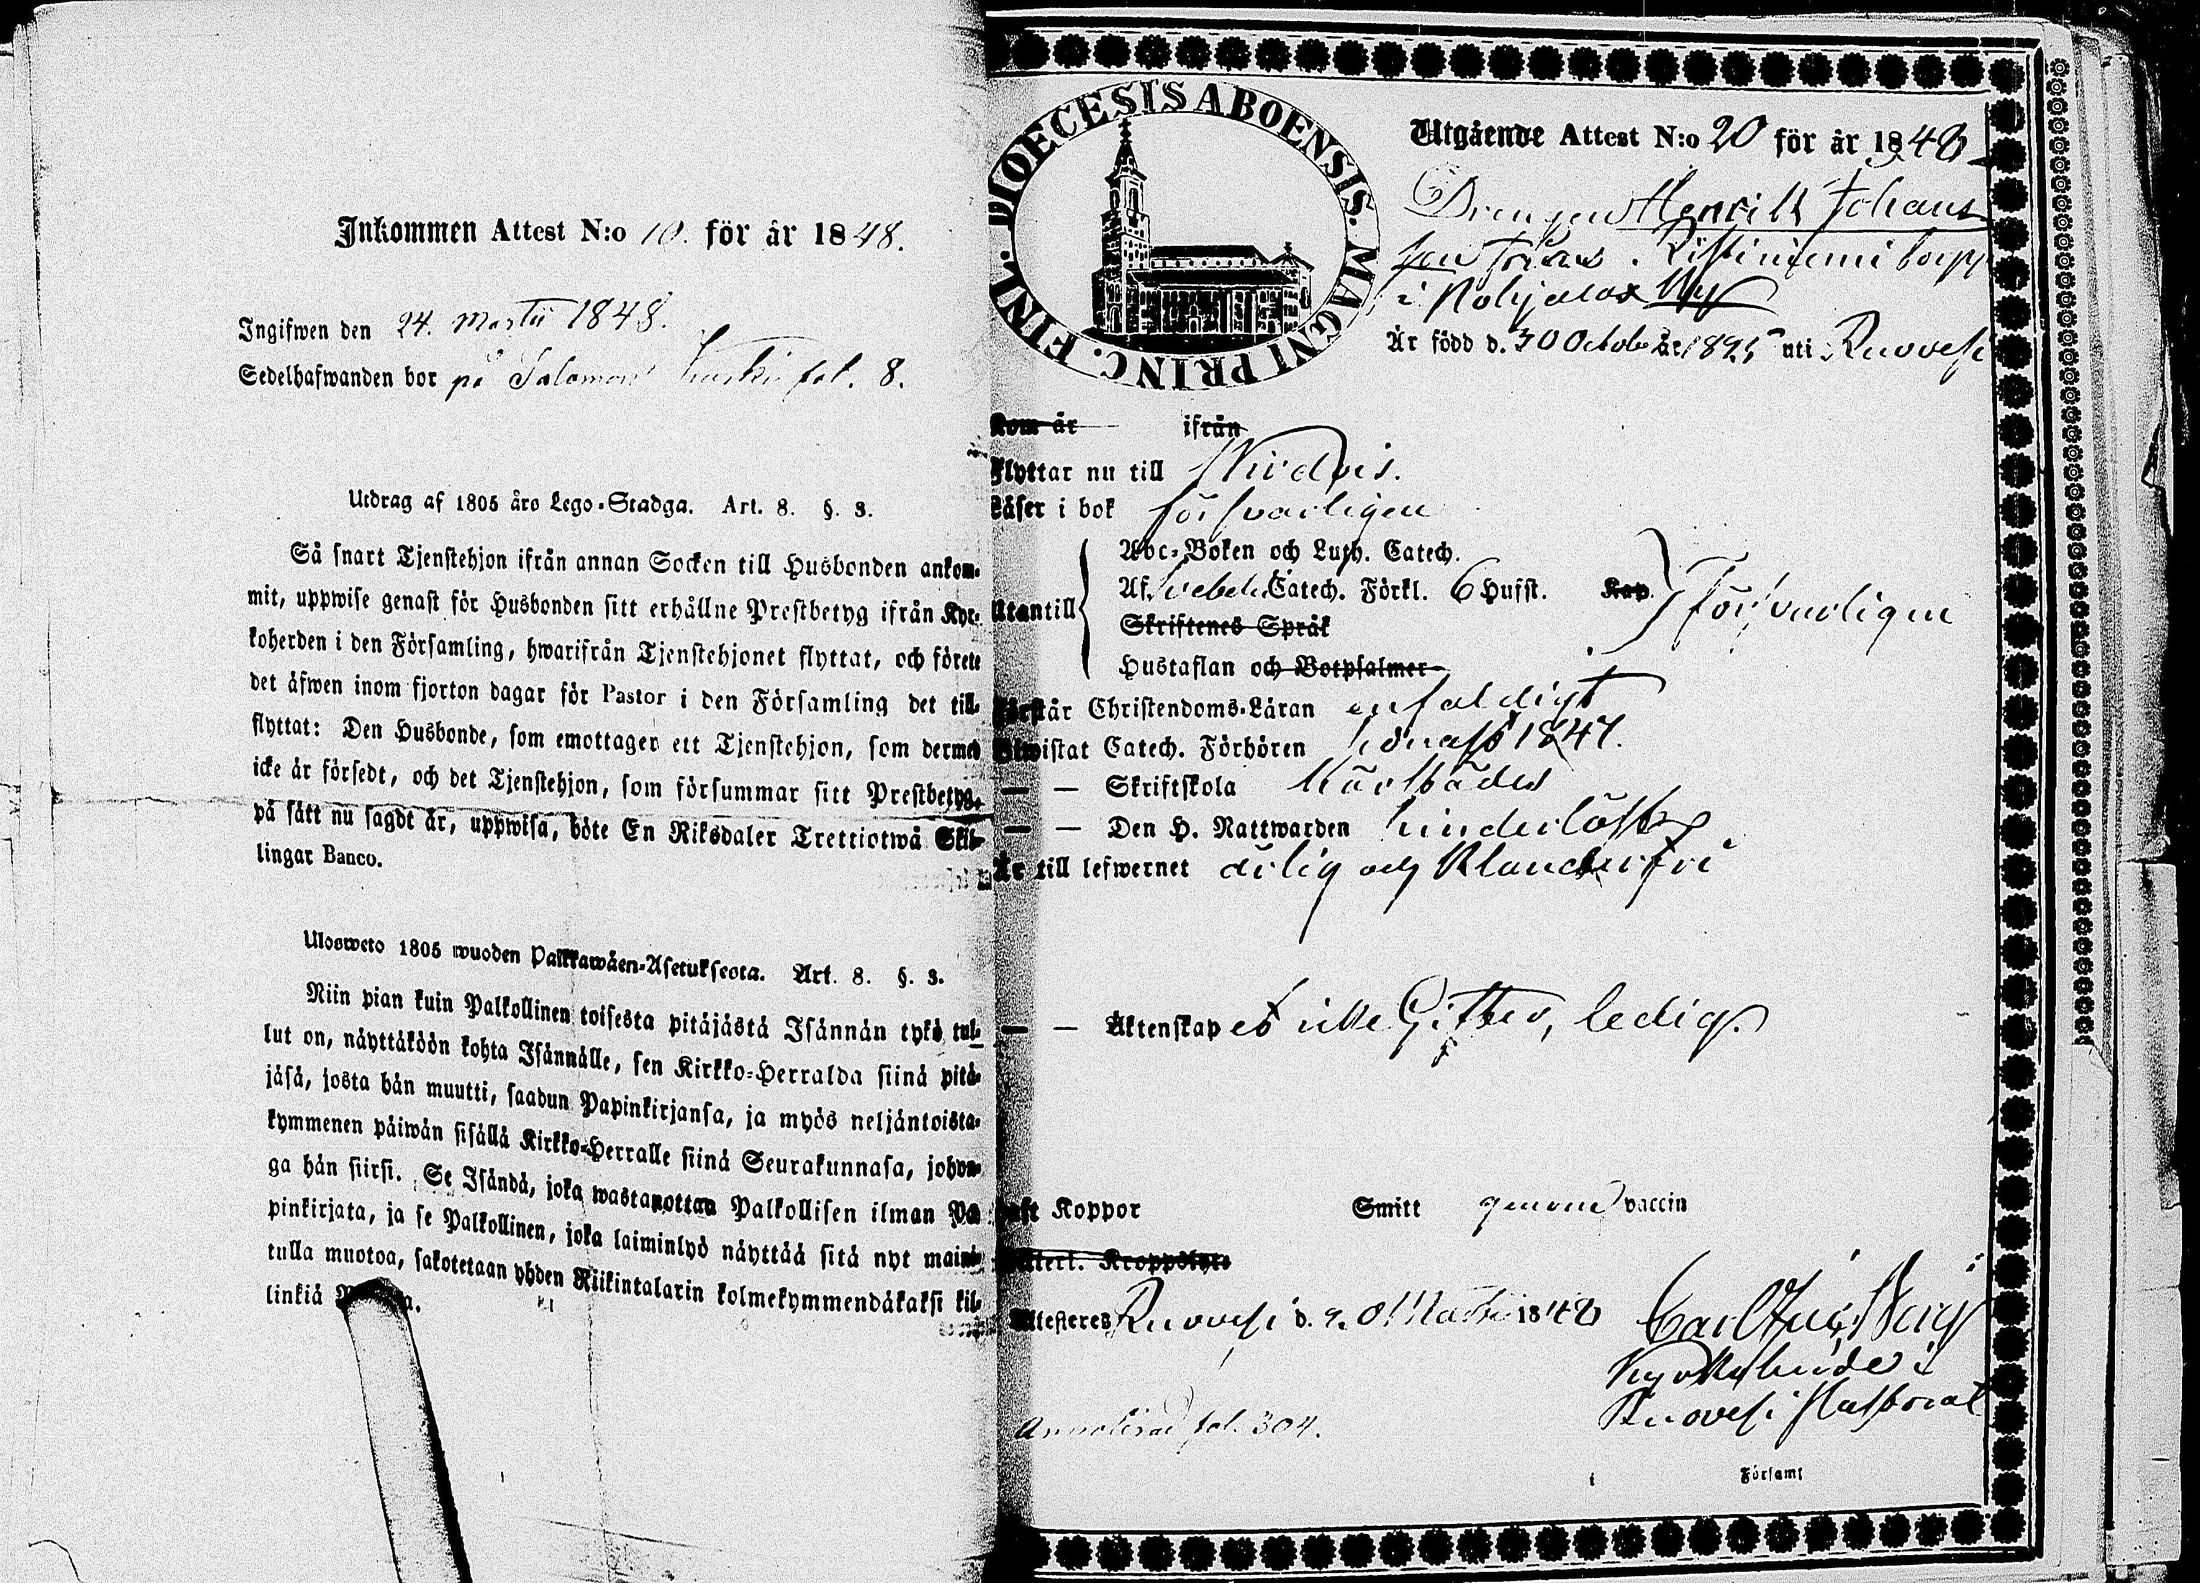 Inkommen Attest N:o 10. för år 1848.
Ingifwen den 24. Martii 1848.
Sedelhafwanden bor på Salomon fol. 8.
Utdrag af 1805 års Lego-Stadga. Art. 8. §. 3.
Så snart Tjenstehjon ifrån annan Socken till Husbonden ankom-
mit, uppwise genast för Husbonden sitt erhållne Prestbetyg ifrån Kyr-
koherden i den Församling, hwarifrån Tjenstehjonet flyttat, och förete
det äfwen inom fjorton dagar för Pastor i den Församling det till-
flyttat: Den Husbonde, som emottager ett Tjenstehjon, som dermed
icke är försedt, och det Tjenstehjon, som försummar sitt Prestbetyg,
på sätt nu sagdt är, uppwisa, böte En Riksdaler Trettiotwå Skil-
lingar Banco.
Ulosweto 1805 wuoden Palkkawäen-Asetuksesta. Art. 8. §. 3.
Niin pian kuin Palkollinen toisesta pitäjästä Isännän tykö tul-
lut on, näyttäköön kohta Isännälle, sen Kirkko-Herralda siinä pitä-
jäsä, josta hän muutti, saadun Papinkirjansa, ja myös neljäntoista-
kymmenen päiwän sisällä Kirkko-Herralle siinä Seurakunnasa, johon-
ga hän siirsi. Se Isändä, joka wastanottaa Palkollisen ilman Pa-
pinkirjata, ja se Palkollinen, joka laiminlyö näyttää sitä nyt maini-
tulla muotoa, sakotetaan yhden Riikintalarin kolmekymmendäkaksi kil-
linkiä
DIOECESIS ABOENSIS. MAGNI PRINC. FINL.
Utgående Attest N:o 20 för år 1848
Drengen Henrik Johans
son Ristiniemi torpp
i Pohjalax By
Är född d. 30 Octobr år 1825 uti Ruovesi
Kom år ifrån
Flyttar nu till Wirdois.
Läser i bok försvarligen
Abc-Boken och Luth. Catech.
Utantill Af Svebeli Catech. Förkl. 6 Hufst. Kap. Försvarligen
Skriftenes Språk
Hustaflan och Botpsalmer
Förstår Christendoms-Läran enfaldigt
Biwistat Catech. Förhören senast 1847.
— — Skriftskola
— — Den H. Nattwarden
Är till lefwernet ärlig och klanderfri
— — Äktenskap ledig.
Haft Koppor Smitt genom vaccin
Kroppslyte
Attesteres Ruovesi d. 20 Martii 1848 Carl
Kyrkoherde i
Ruovesi Pastorat
Annoterad fol. 304.
Församl